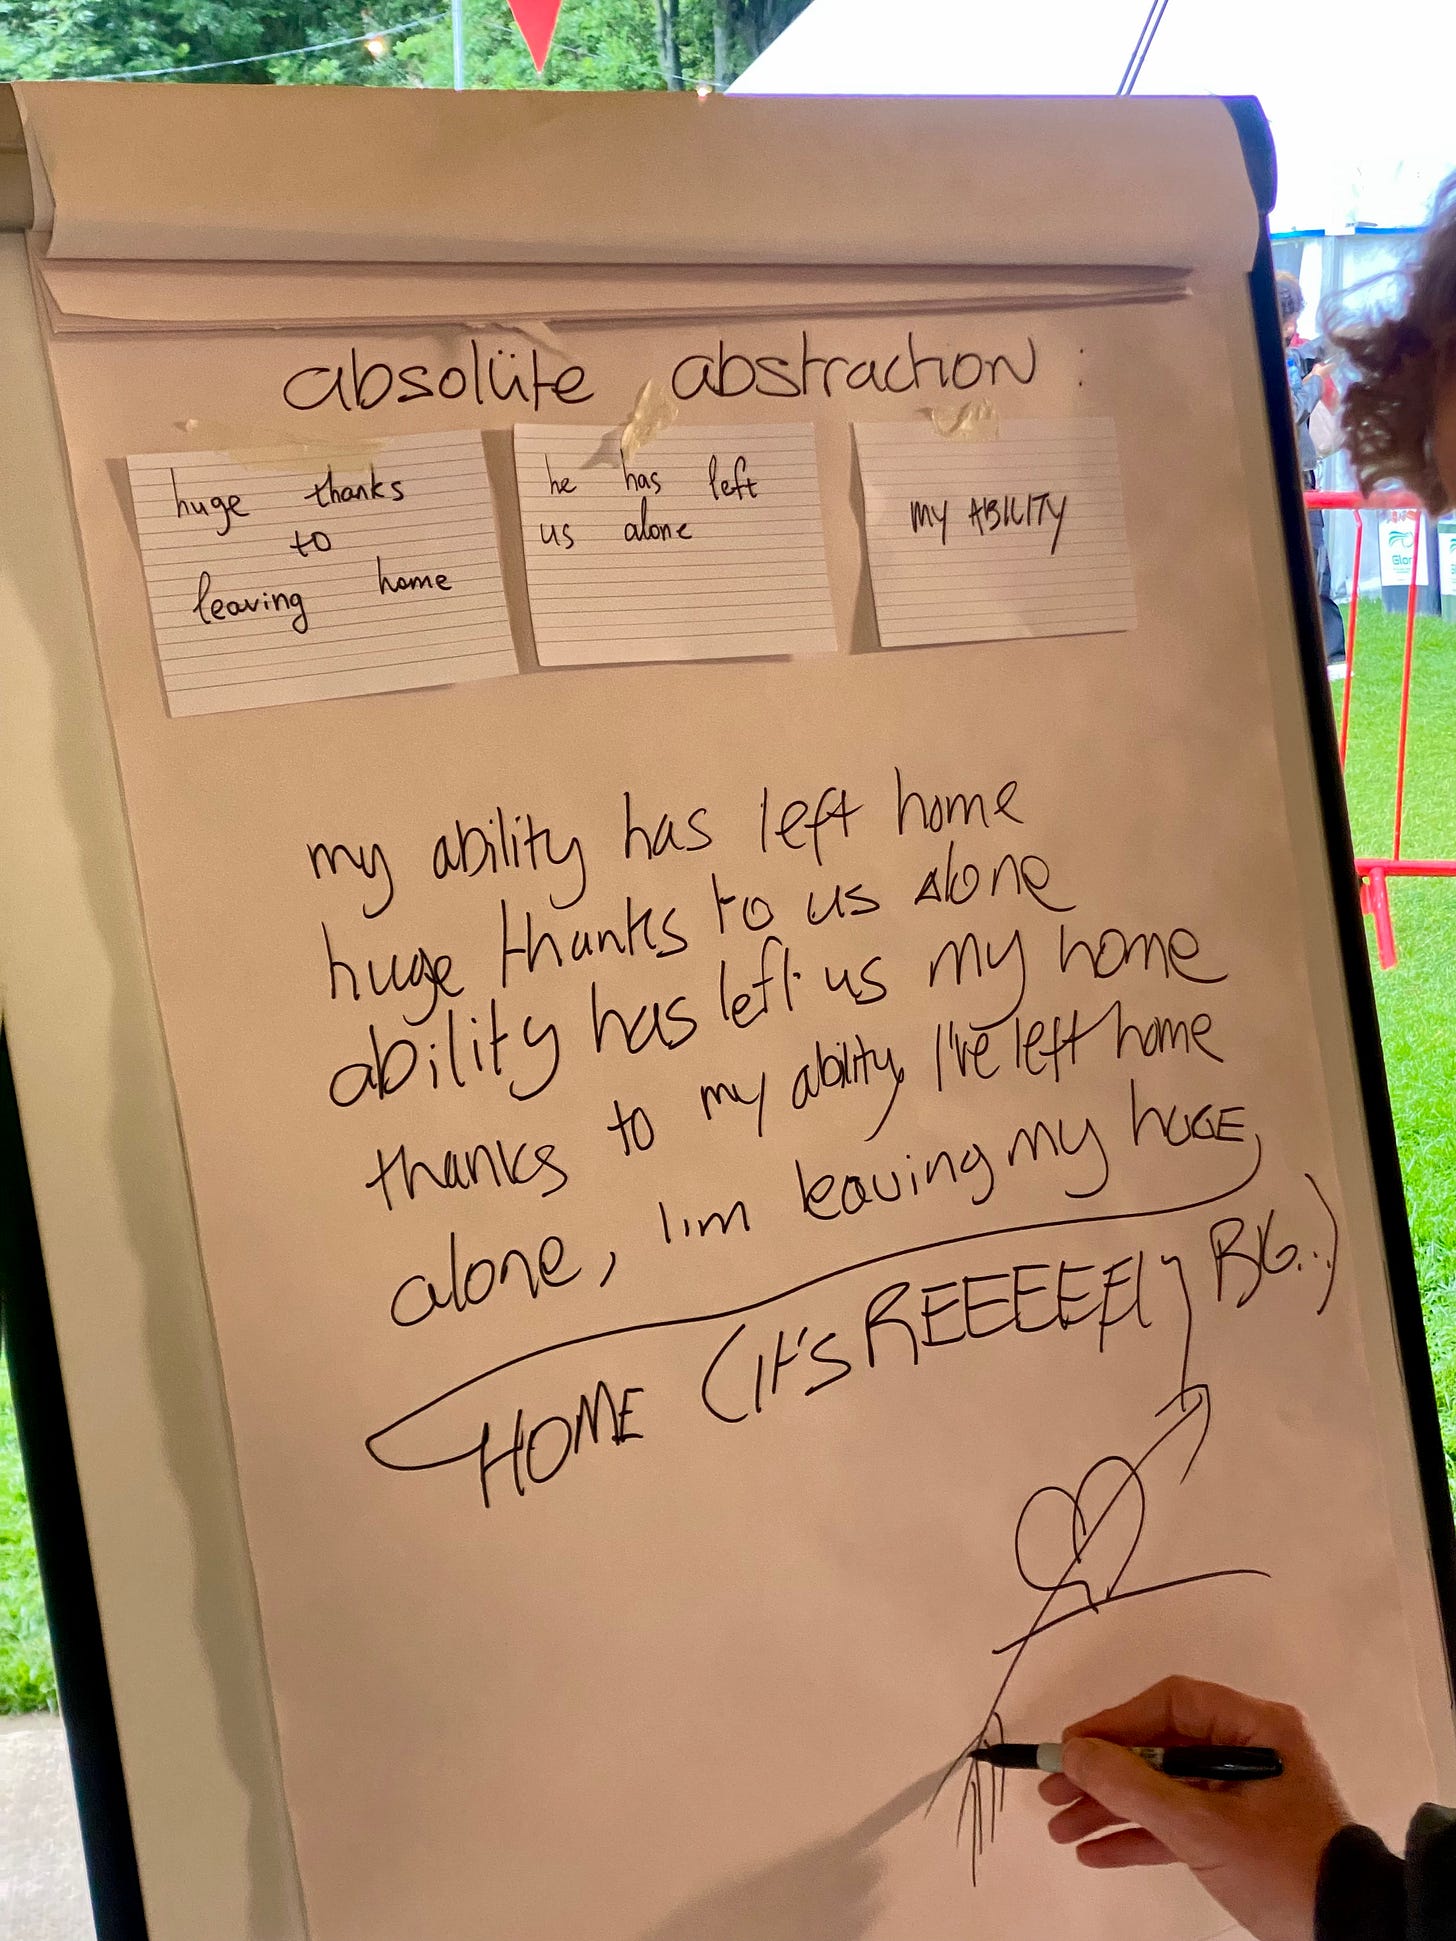 absolüte abstraction :
huge thanks
to
leaving home
he has left
us alone
MY ABILITY
my ability has left home
huge thanks to us alone
ability has left us my home
thanks to my ability, I've left home
alone, I'm leaving my HUGE
HOME (IT'S REEEEEElly BIG..)
Glor